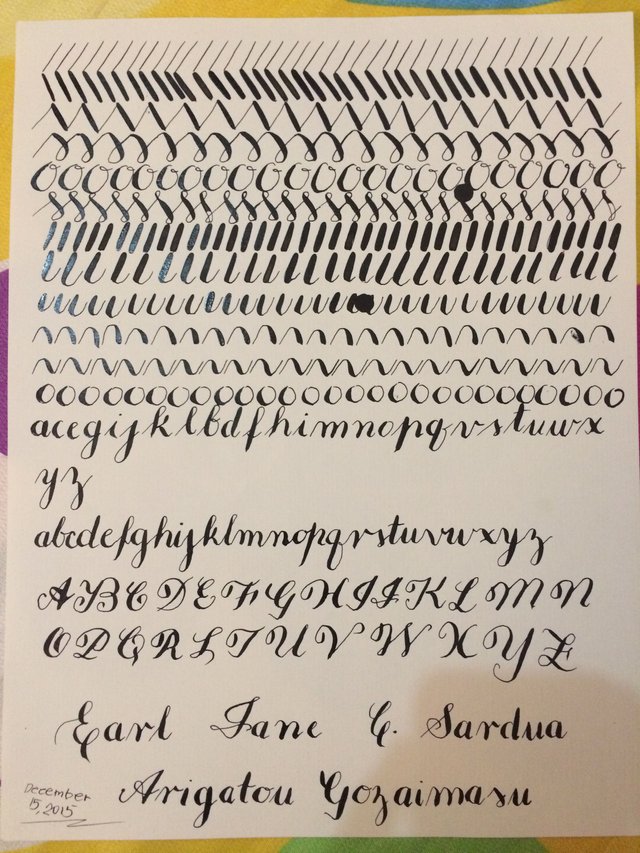 acegijklbdfhimnopqrstuwx
yz
abcdefghijklmnopqrstuvwxyz
ABCDEFGHIJKLMN
OPQRSTUVWXYZ
Earl Jane C. Sardua
Arigatou Gozaimasu
December
15, 2015